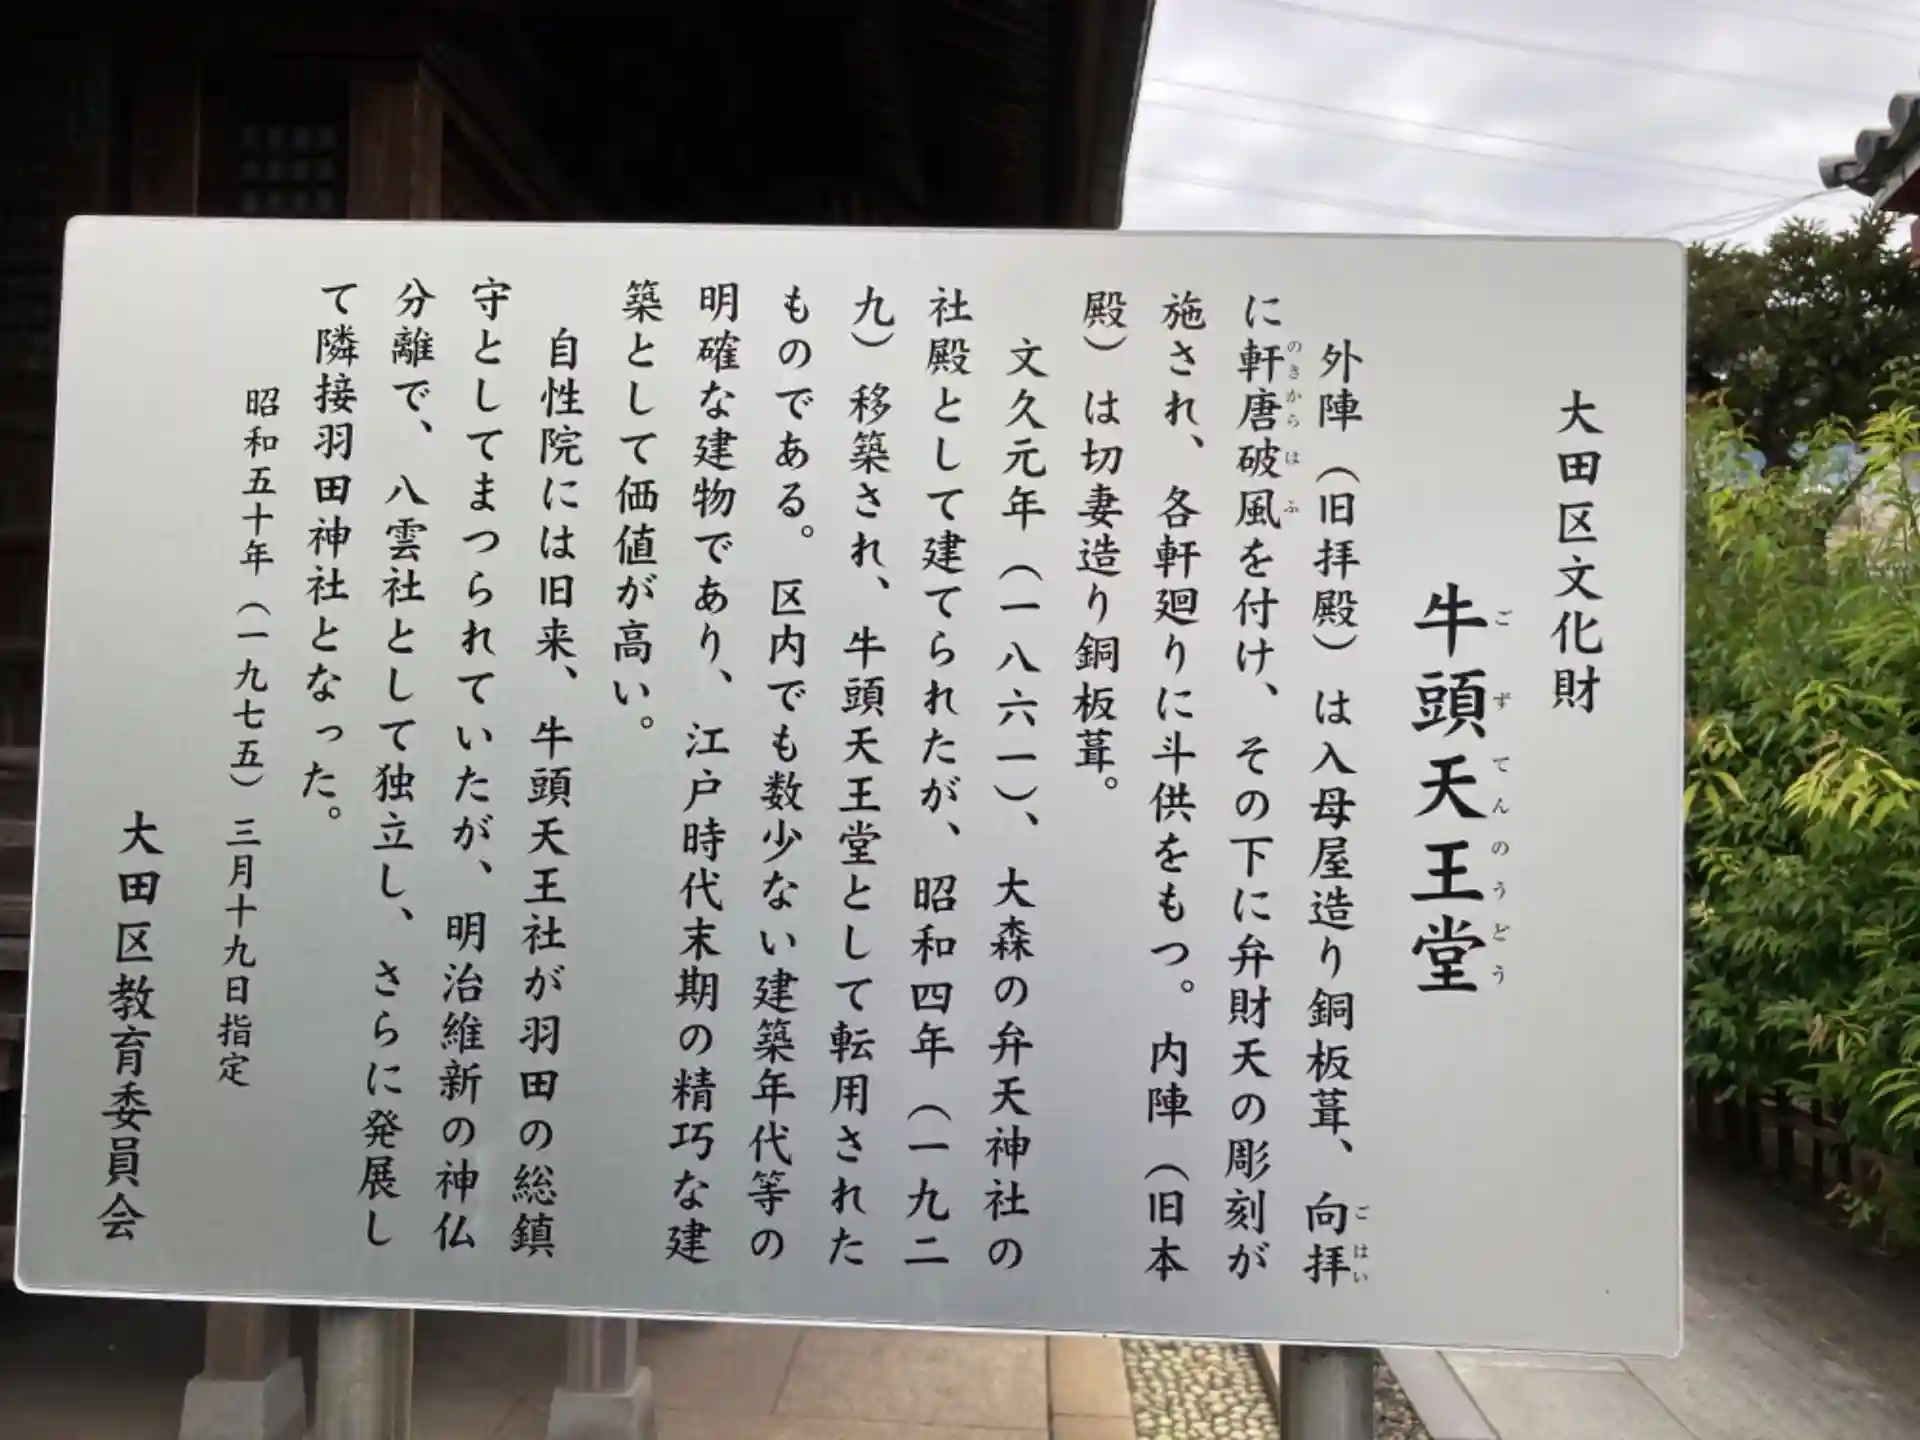 大田区文化財
牛頭天王堂
ごずてんのうどう
外陣（旧拝殿）は入母屋造り銅板葺、向拝
ごはい
に軒唐破風を付け、その下に弁財天の彫刻が
のきからはふ
施され、各軒廻りに斗供をもつ。内陣（旧本
殿）は切妻造り銅板葺。
文久元年（一八六一）、大森の弁天神社の
社殿として建てられたが、昭和四年（一九二
九）移築され、牛頭天王堂として転用された
ものである。区内でも数少ない建築年代等の
明確な建物であり、江戸時代末期の精巧な建
築として価値が高い。
自性院には旧来、牛頭天王社が羽田の総鎮
守としてまつられていたが、明治維新の神仏
分離で、八雲社として独立し、さらに発展し
て隣接羽田神社となった。
昭和五十年（一九七五）三月十九日指定
大田区教育委員会